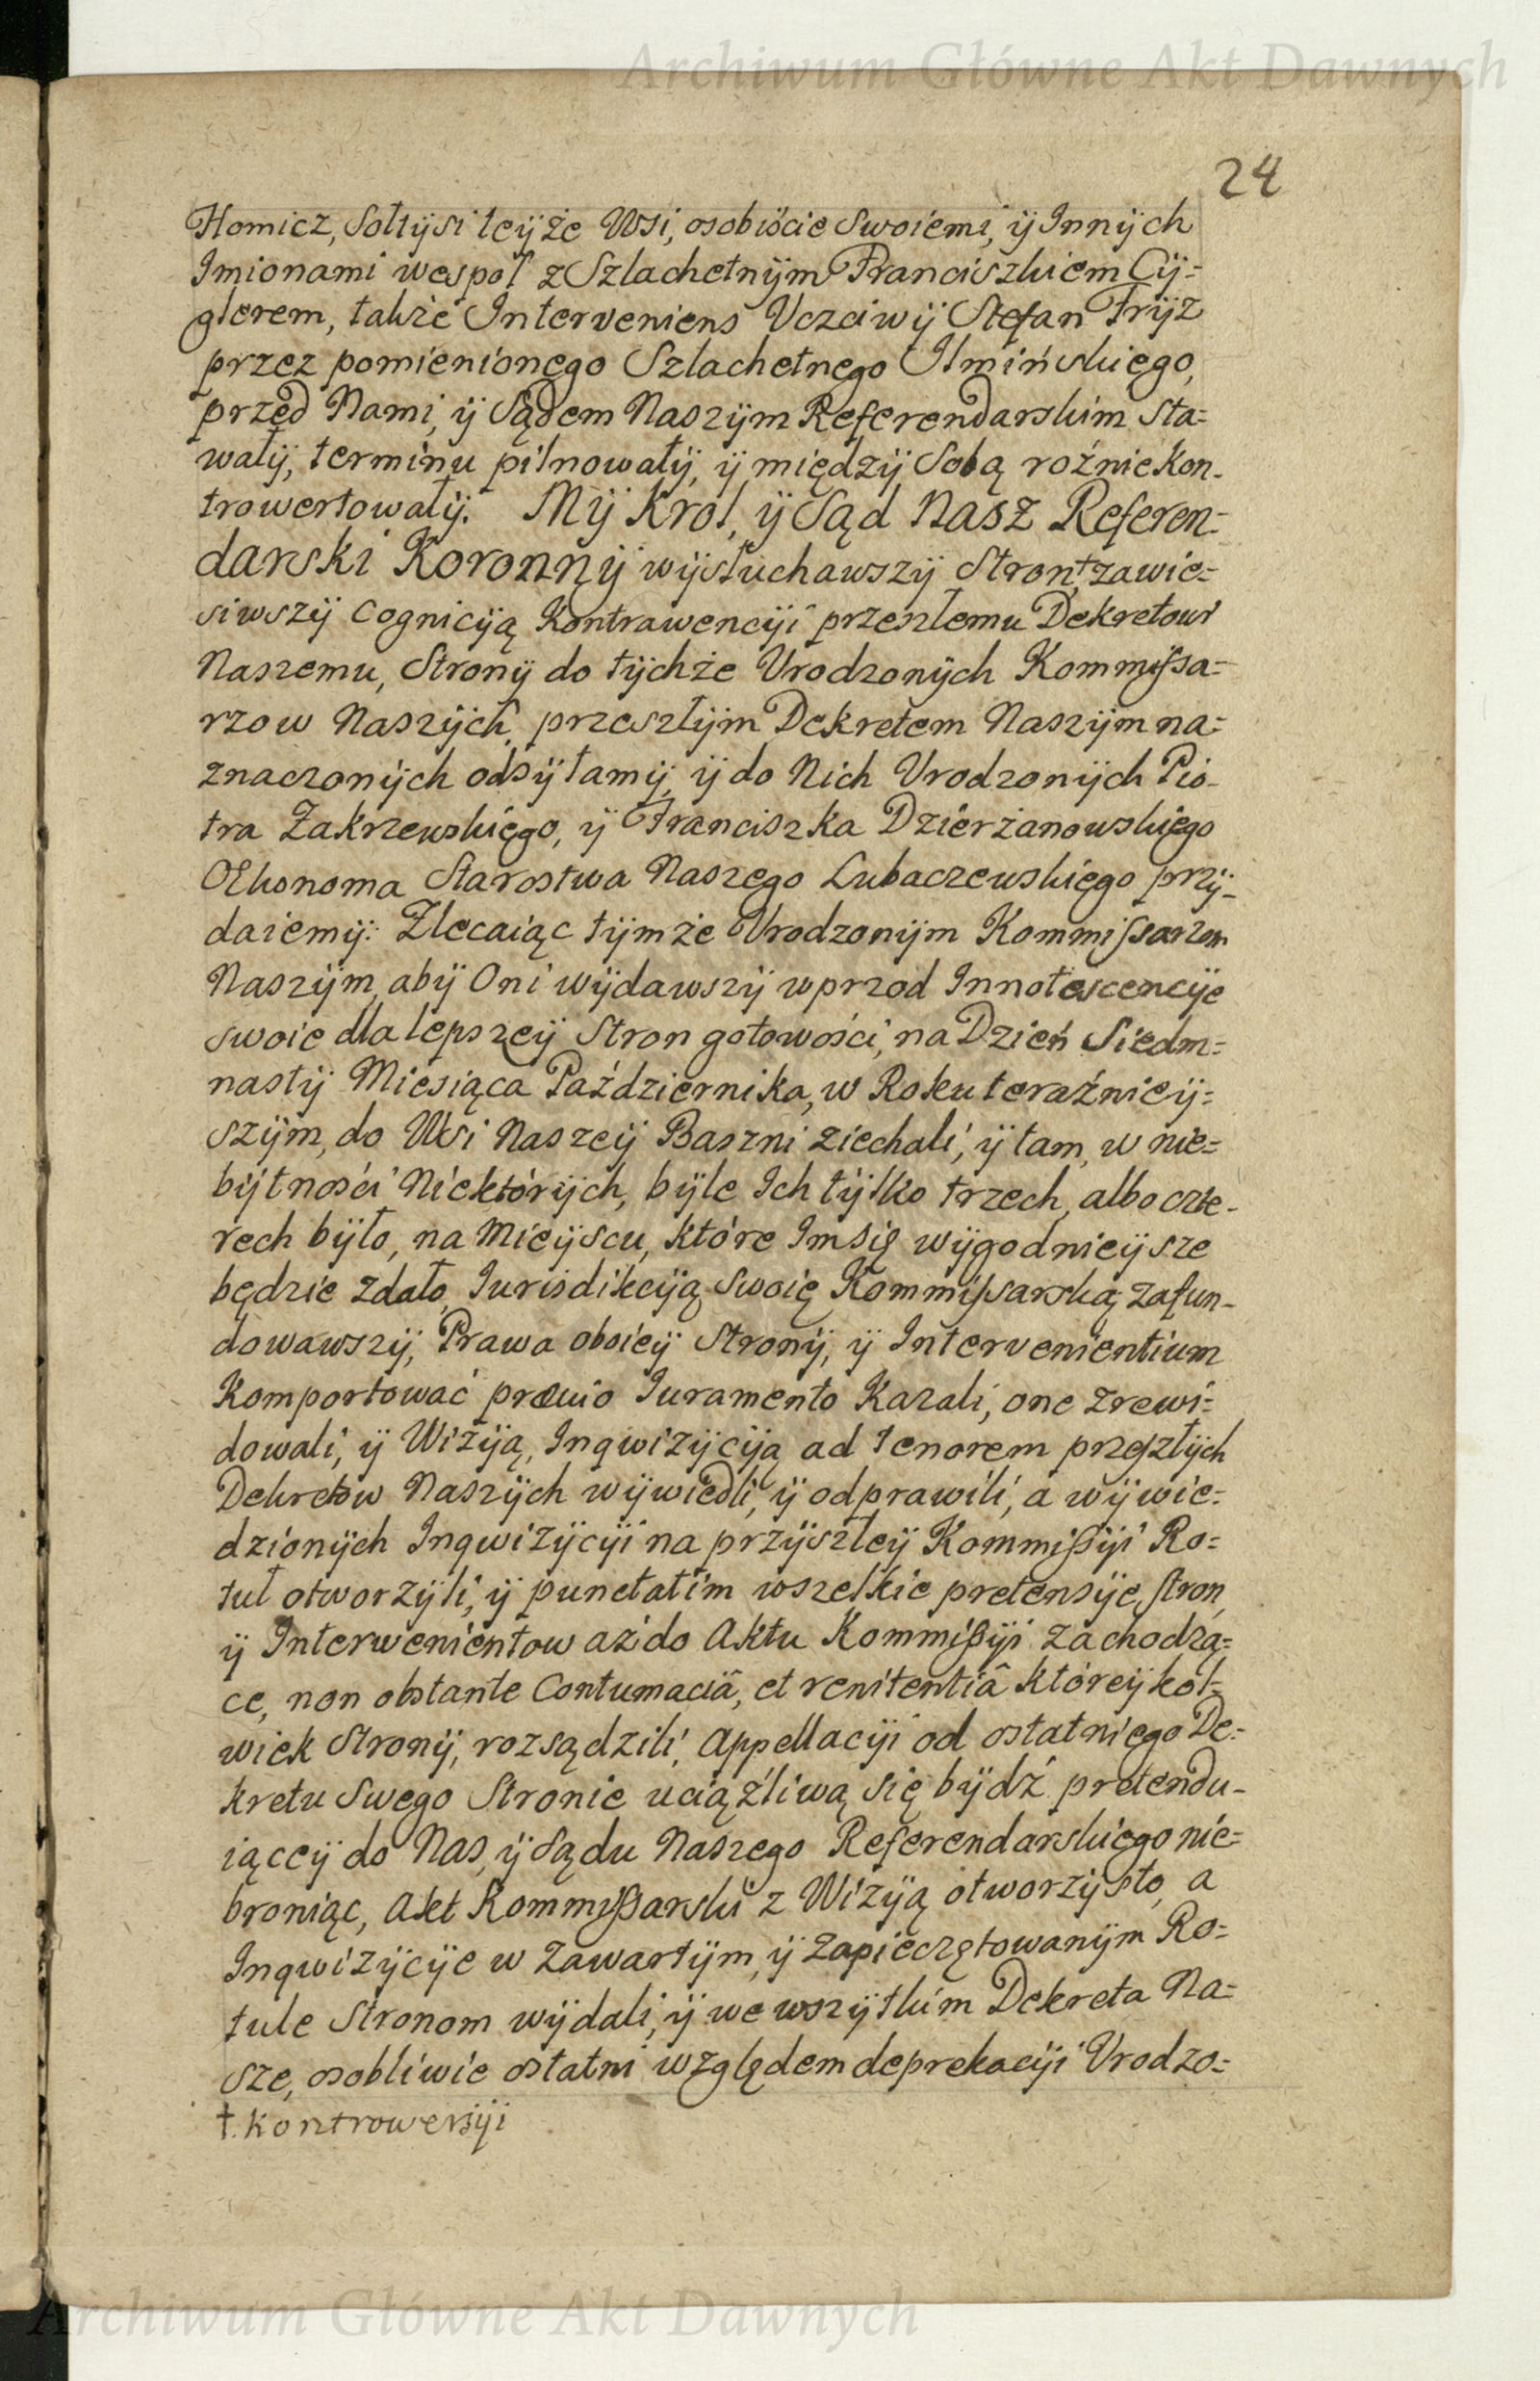 Archiwum Główne Akt Dawnych
24
Homicz, Sołtysi teÿże Wsi, osobiście Swoiemi, ÿ Innÿch
Imionami wespoł z Szlachetnÿm Franciszkiem Cÿ=
glerem, także Interveniens Uczciwÿ Stefan Frÿz
przez pomienionego Szlachetnego Ilmińskiego,
przed Nami, ÿ Sądem Naszÿm Referendarskim sta=
wałÿ, terminu pilnowałÿ, ÿ międzÿ Sobą roźnie kon-
trowertowałÿ. Mÿ Krol, ÿ Sąd Nasz Referen=
darski Koronnÿ wÿsłuchawszÿ Stron † zawie=
siwszÿ Cognicÿą Kontrawencÿi przeszłemu Dekretowi
Naszemu, Stronÿ do tÿchże Urodzonÿch Kommissa=
rzow Naszÿch, przeszłÿm Dekretem Naszÿm na=
znaczonÿch odsÿłamÿ, ÿ do Nich Urodzonÿch Pio-
tra Zakrzewskiego, ÿ Franciszka Dzierżanowskiego
OEkonoma Starostwa Naszego Lubaczewskiego prz̈y-
daiemÿ: Zlecaiąc tÿmże Urodzonÿm Kommissarzom
Naszÿm, abÿ Oni wÿdawszÿ wprzod Innotescencÿe
swoie dla lepszeÿ Stron gotowości, na Dzień Siedm=
nastÿ Miesiąca Października, w Roku teraźnieÿ=
szÿm, do Wsi Naszeÿ Baszni ziechali, ÿ tam, w nie=
bÿtności Niektórÿch, bÿle Ich tÿlko trzech, albo czte-
rech bÿło, na Mieÿscu, które Im się wÿgodnieÿsze
będzie zdało, Iurisdikcÿą Swoię Kommissarską zafun-
dowawszÿ, Prawa oboieÿ Stronÿ, ÿ Intervenientium
Komportować prævio Iuramento Kazali, one zrewi=
dowali, ÿ Wizÿą, Inqwizÿcÿą ad tenorem przeszłÿch
Dekretow Naszÿch wÿwiedli, ÿ odprawili, a wÿwie=
dzionÿch Inqwizÿcÿi na przÿszłeÿ Kommißÿi Ro=
tuł otworzÿli, ÿ punctatim wszelkie pretensÿe stron,
ÿ Interwenientow aż do Aktu Kommißÿi zachodzą=
ce, non obstante Contumaciâ, et renitentiâ któreÿkol=
wiek Stronÿ, rozsądzili, Appellacÿi od ostatniego De=
kretu Swego Stronie uciążliwą się bÿdź pretendu-
iąceÿ do Nas, ÿ Sądu Naszego Referendarskiego nie=
broniąc, Akt Kommißarski z Wizÿą otworzÿsto, a
Inqwizÿcÿe w Zawartÿm, ÿ Zapieczętowanÿm Ro=
tule Stronom wÿdali, ÿ we wszÿtkim Dekreta Na=
sze, osobliwie ostatni względem deprekacÿi Urodzo=
†. Kontrowersÿi
Archiwum Główne Akt Dawnych